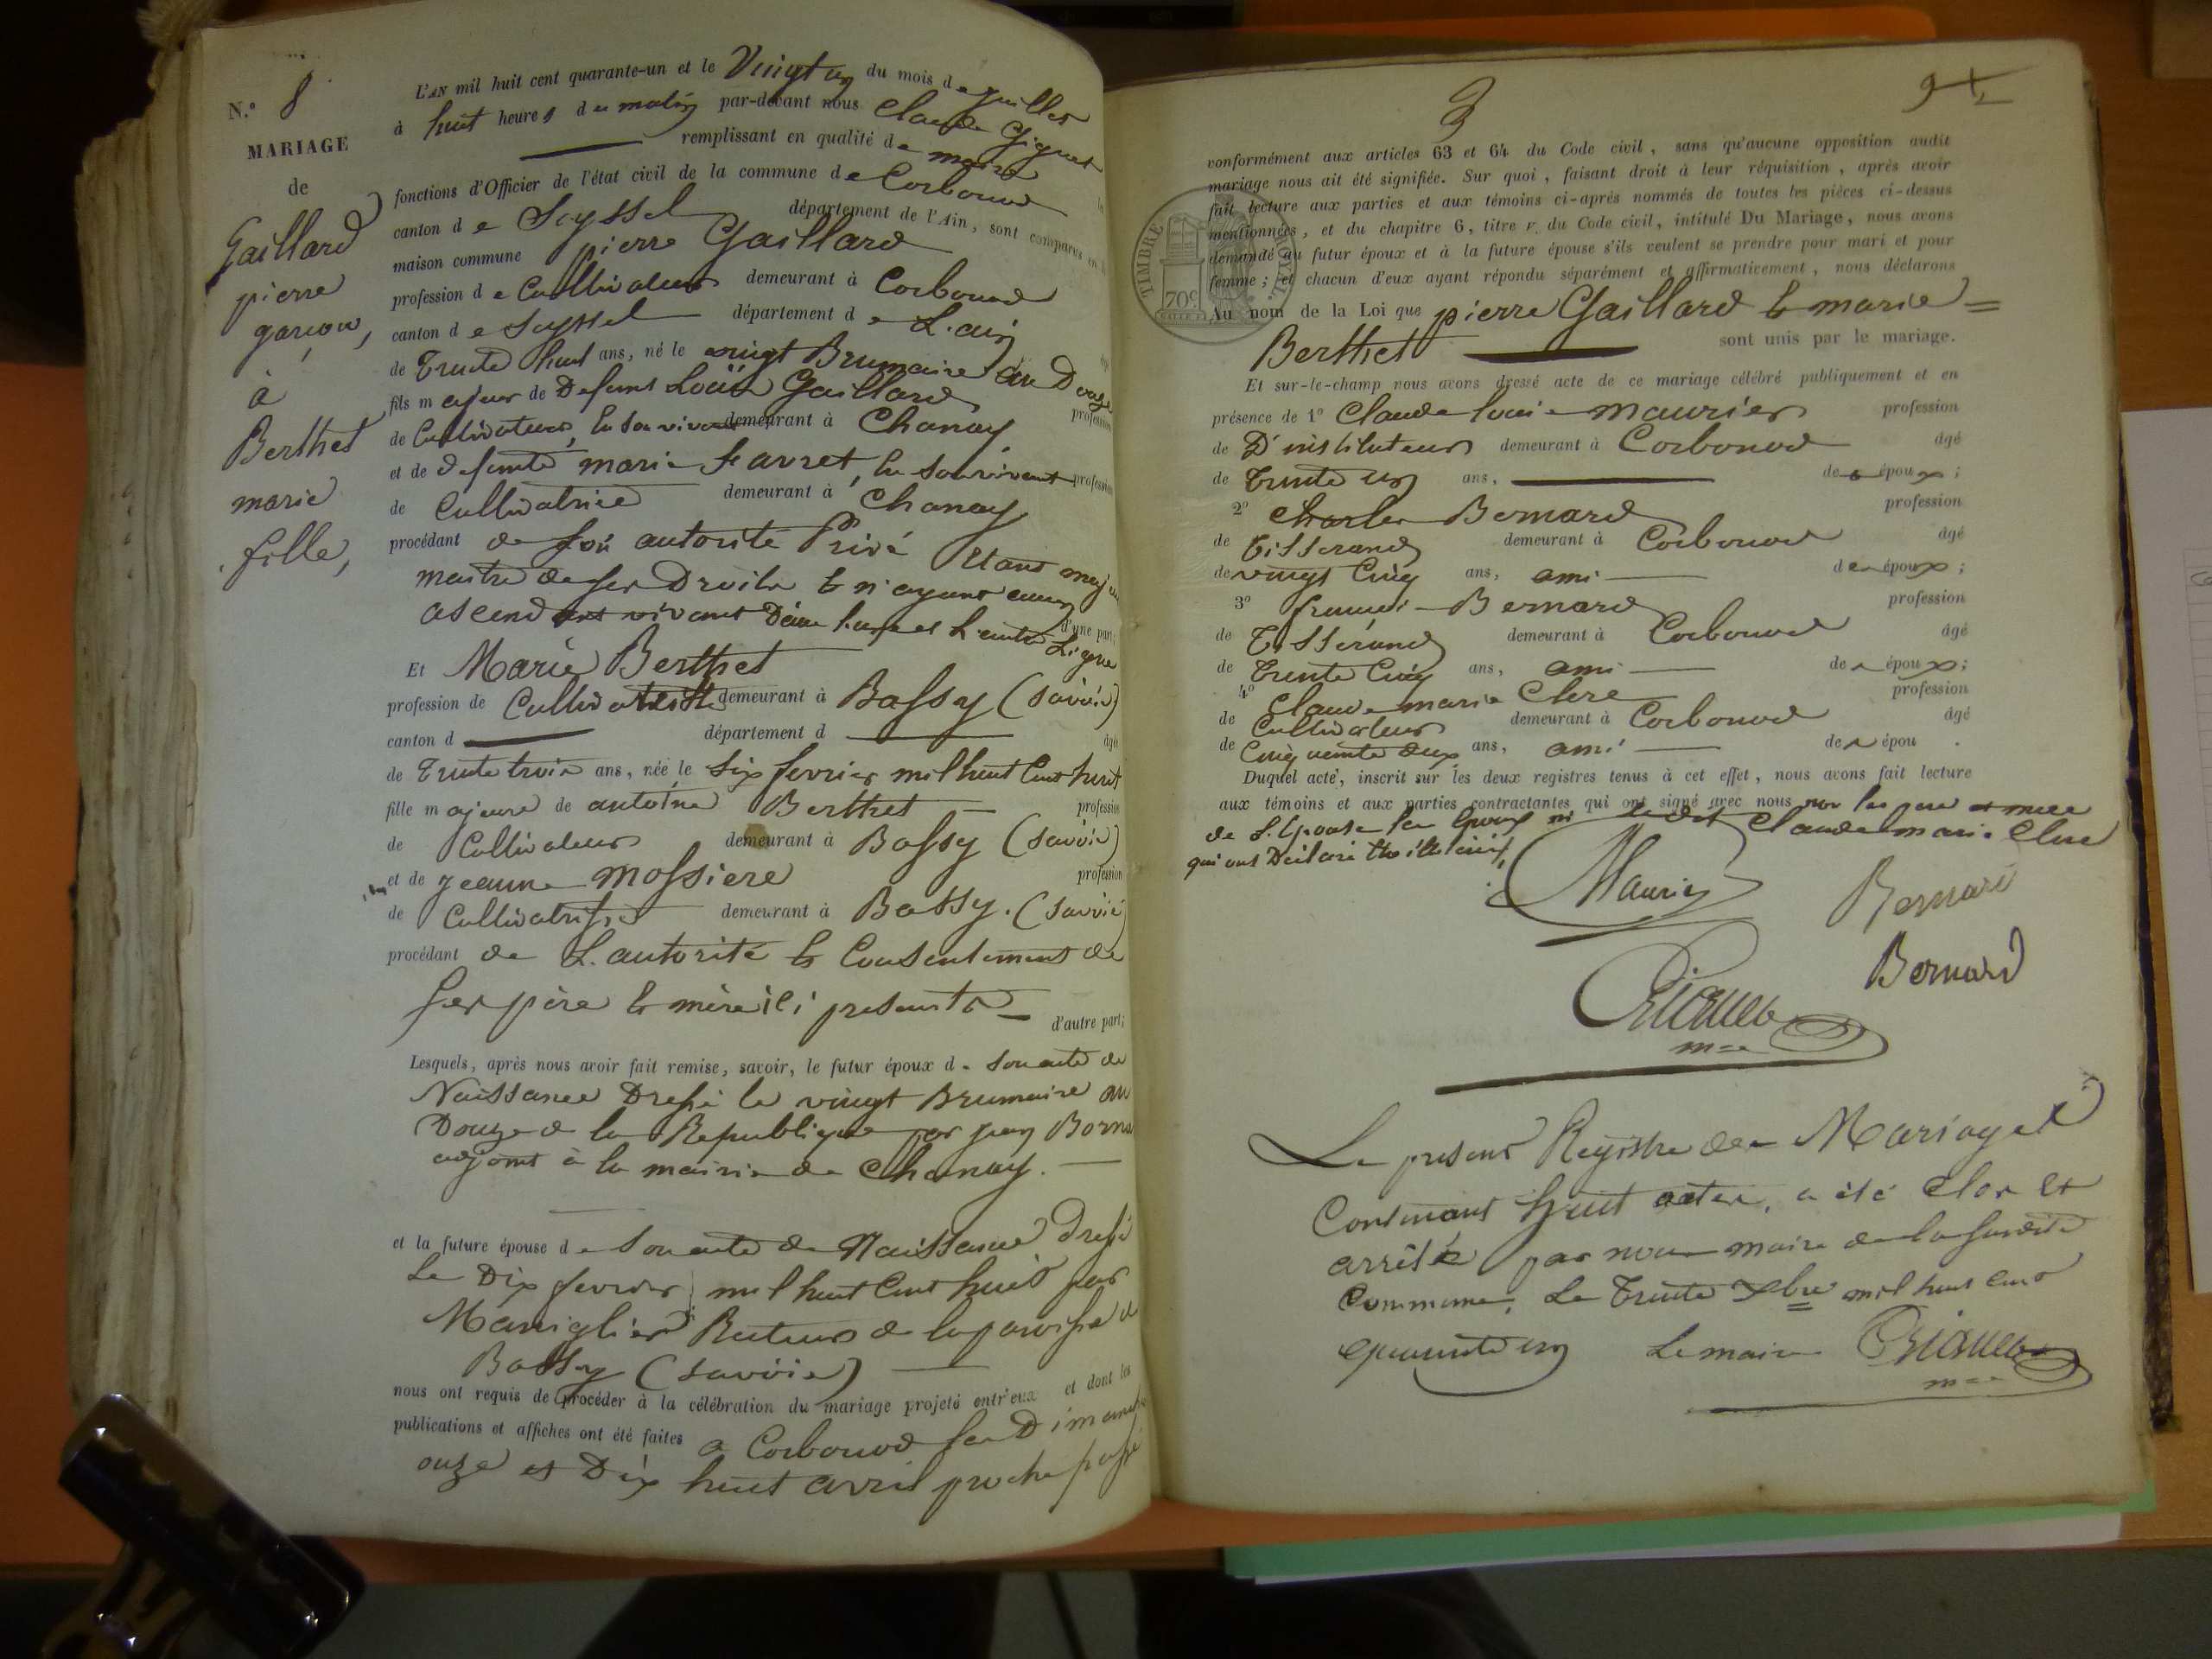 N.º 8
MARIAGE
de
Gaillard
pierre
garçon,
à
Berthet
marie
fille,
L'AN mil huit cent quarante-un et le Vingt un du mois de juillet
à huit heures du matin par-devant nous Claude
remplissant en qualité de maire
fonctions d'Officier de l'état civil de la commune de Corbonod
canton de Seyssel département de l'Ain, sont comparus en
maison commune pierre Gaillard
profession de Cultivateur demeurant à Corbonod
canton de Seyssel département de L'ain
de trente huit ans, né le vingt Brumaire an Douze
fils majeur de Defunt Loüis Gaillard profession
de Cultivateur, en son vivant demeurant à Chanay
et de defunte marie favret, en son vivant profession
de Cultivatrice demeurant à Chanay
procédant de son autorité Privé Etant majeur
maitre de ses Droits et n'ayant aucun
ascendant vivant Dans l'une et l'autre Ligne d'une part;
Et Marie Berthet
profession de Cultivatrisse demeurant à Bassy (savoie)
canton d département d âgé
de trente trois ans, née le six fevrier mil huit Cent huit
fille majeure de antoine Berthet profession
de Cultivateur demeurant à Bassy (savoie)
et de jeanne mossiere profession
de Cultivatrisse demeurant à Bassy. (savoie)
procédant de L'autorité et Consentement de
ses père et mère ici presents d'autre part;
Lesquels, après nous avoir fait remise, savoir, le futur époux de son acte de
Naissance Dressé le vingt Brumaire an
Douze de la Republique par jean
adjoint à la mairie de Chanay.
et la future épouse de son acte de Naissance dressé
Le Dix fevrier mil huit Cent huit par
Maniglier Recteur de la paroisse de
Bassy (savoie)
nous ont requis de procéder à la célébration du mariage projeté entr'eux et dont les
publications et affiches ont été faites a Corbonod les Dimanche
onze et Dix huit avril proche passé
3
conformément aux articles 63 et 64 du Code civil, sans qu'aucune opposition audit
mariage nous ait été signifiée. Sur quoi, faisant droit à leur réquisition, après avoir
fait lecture aux parties et aux témoins ci-après nommés de toutes les pièces ci-dessus
mentionnées, et du chapitre 6, titre v. du Code civil, intitulé Du Mariage, nous avons
demandé au futur époux et à la future épouse s'ils veulent se prendre pour mari et pour
femme; et chacun d'eux ayant répondu séparément et affirmativement, nous déclarons
TIMBRE ROYAL.
70c
Au nom de la Loi que pierre Gaillard et marie =
Berthet sont unis par le mariage.
Et sur-le-champ nous avons dressé acte de ce mariage célébré publiquement et en
présence de 1º Claude louis maurier profession
de D'instituteur demeurant à Corbonod âgé
de trente un ans, de époux;
2º Charles Bernard profession
de tisserand demeurant à Corbonod âgé
de vingt Cinq ans, ami des époux;
3º françois Bernard profession
de tisserand demeurant à Corbonod âgé
de trente Cinq ans, ami des époux;
4º Claude marie Clerc profession
de Cultivateur demeurant à Corbonod âgé
de Cinquante deux ans, ami des épou .
Duquel acte, inscrit sur les deux registres tenus à cet effet, nous avons fait lecture
aux témoins et aux parties contractantes qui ont signé avec nous non les pere et mere
de L'Epouse les Epoux ni le dit Claude marie Clerc
qui ont Déclaré
Maurier
Bernard
Bernard
Le present Registre des Mariages
Contenant huit actes, a été Clos et
arrêté par nous maire de la susdite
Commune, Le trente Xbre mil huit Cent
quarante un Le maire